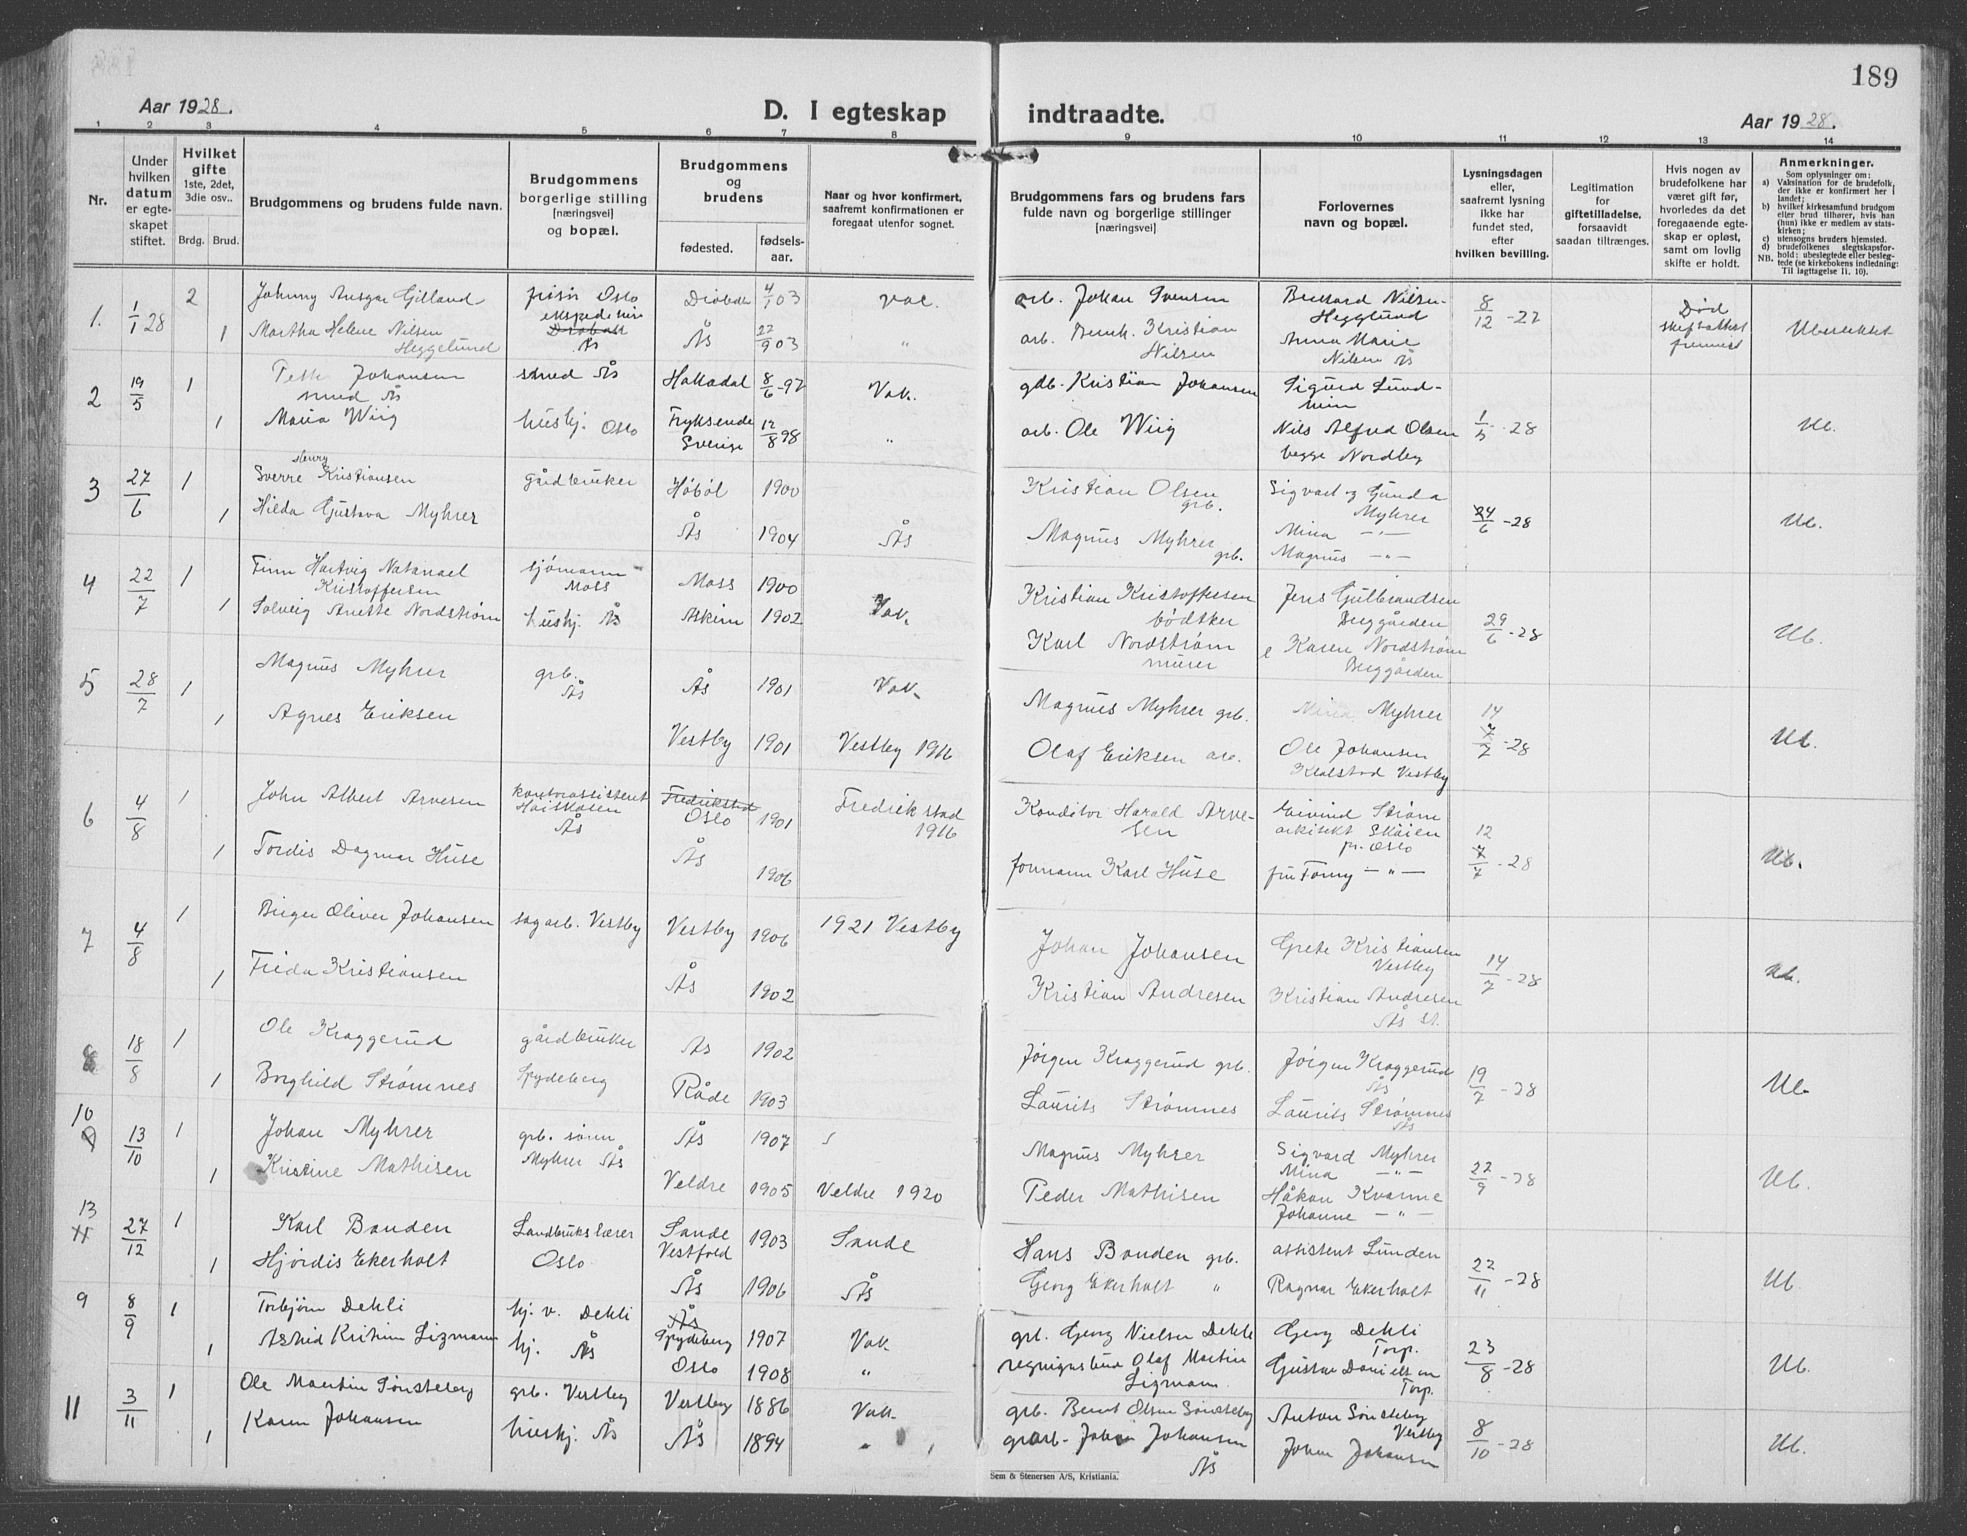 189
Aar 1928.
D. I egteskap indtraadte.
Aar 1928.
1 2 3 4 5 6 7 8 9 10 11 12 13 14
Nr.
Under hvilken datum er egteskapet stiftet.
Hvilket gifte 1ste, 2det, 3die osv..
Brdg. Brud.
Brudgommens og brudens fulde navn.
Brudgommens borgerlige stilling [næringsvei] og bopæl.
Brudgommens og brudens
fødested.
fødselsaar.
Naar og hvor konfirmert, saafremt konfirmationen er foregaat utenfor sognet.
Brudgommens fars og brudens fars fulde navn og borgerlige stillinger [næringsvei]
Forlovernes navn og bopæl.
Lysningsdagen eller, saafremt lysning ikke har fundet sted, efter hvilken bevilling.
Legitimation for giftetilladelse, forsaavidt saadan tiltrænges.
Hvis nogen av brudefolkene har været gift før, hvorledes da det foregaaende egteskap er opløst, samt om lovlig skifte er holdt.
Anmerkninger.
Som oplysninger om:
a) Vaksination for de brudefolk, der ikke er konfirmert her i landet;
b) hvilket kirkesamfund brudgom eller brud tilhører, hvis han (hun) ikke er medlem av statskirken;
c) utensogns bruders hjemsted.
d) brudefolkenes slegtskapsforhold: ubeslegtede eller beslegtede (se kirkebokens indledning:
NB. Til Iagttagelse II. 10).
1. 1/1 28 2 Johnny Ansgar Gilland frisør Oslo Drøbak 4/1 03 vac. arb. Johan Svensen Bernard Nilsen Hegglund 8/12 - 27 Død
1 Martha Helene Nilsen Heggelund Ås Ås 22/9 03 " arb. Kristian Nilsen Anna Marie Nilsen Ås
2 19/5 1 Johansen smed Ås smed Ås 8/6 - 97 Vak. gdb. Kristian Johansen Sigurd
1 Maria Wiig huskj. Oslo Fryksende Sverige 12/8 98 " arb. Ole Wiig Nils Alfred Olsen begge Nordby 1/5 - 28 Ub.
3 27/6 1 Sverre Henry Kristiansen gårdbruker Høbøl 1900 Kristian Olsen grb. Sigvart og Gunda Myhrer
1 Hilda Gustava Myhrer Ås 1904 Ås Magnus Myhrer grb. Mina - " - Magnus - " - 24/6 - 28 Ub.
4 22/7 1 Finn Hartvig Natanael Kristoffersen sjømann Moss Moss 1900 Kristian Kristoffersen bødtker Jens Gulbrandsen Berggården
1 Solveig Anette Nordstrøm huskj. Ås Askim 1902 Vak. Karl Nordstrøm murer Karen Nordstrøm Berggården 29/6 - 28 Ub.
5 28/7 1 Magnus Myhrer grb. Ås Ås 1901 Vak. Magnus Myhrer grb. Mina Myhrer
1 Agnes Eriksen Vestby 1901 Vestby 1916 Olaf Eriksen arb. Ole Johansen Vestby 14/7 - 28 Ub.
6 4/8 1 John Albert Arvesen kontorassistent Ås Fredrikstad Oslo 1901 Fredrikstad 1916 Konditor Harald Arvesen Eivind Strøm arkitekt Skøien pr. Oslo
1 Tordis Dagmar Huse Ås 1906 formann Karl Huse fru Fanny - " - 12/7 - 28 Ub.
7 4/8 1 Birger Oliver Johansen sagarb. Vestby Vestby 1906 1921 Vestby Johan Johansen Grete Kristiansen Vestby
1 Frida Kristiansen Ås 1902 Kristian Andresen Kristian Andresen Ås st. 14/7 - 28 Ub.
8 18/8 1 Ole Kraggerud gårdbruker Ås 1902 Jørgen Kraggerud grb. Jørgen Kraggerud Ås
1 Borghild Strømnes Spydeberg Råde 1903 Laurits Strømnes Laurits Strømnes Ås 19/7 - 28 Ub
10 9 13/10 1 Johan Myhrer grb. sønn Myhrer Ås Ås 1907 Magnus Myhrer Sigvard Myhrer Mina - " -
1 Kristine Mathisen Veldre 1905 Veldre 1920 Peder Mathisen Håkon Kvarme Johanne - " - 22/9 - 28 Ub.
13 11 27/12 1 Karl Bonden Landbrukslærer Sande Vestfold 1903 Sande Hans Bonden grb. assistent Lunden
1 Hjørdis Ekerholt Oslo Ås 1906 Ås Georg Ekerholt " Ragnar Ekerholt 22/11 - 28 Ub.
9 8/9 1 Torbjørn Dehli hj. v. Dehli Ås Spydeberg 1907 Vak. grb. Georg Nielsen Dehli Georg Dehli Torp.
1 Astrid Sizmann hj. Ås Oslo 1908 " Olaf Martin Sizmann Gustav Danielsen Torp. 23/8 - 28 Ub.
11 3/11 1 Ole Martin Sønsteby grb. Vestby Vestby 1886 Vak. grb. Bernt Olsen Sønsteby Anton Sønsteby Vestby
1 Karen Johansen huskj. Ås Ås 1894 " Johan Johansen Ås Johan Johansen 8/10 - 28 Ub.
Sem & Stenersen A/S, Kristiania.